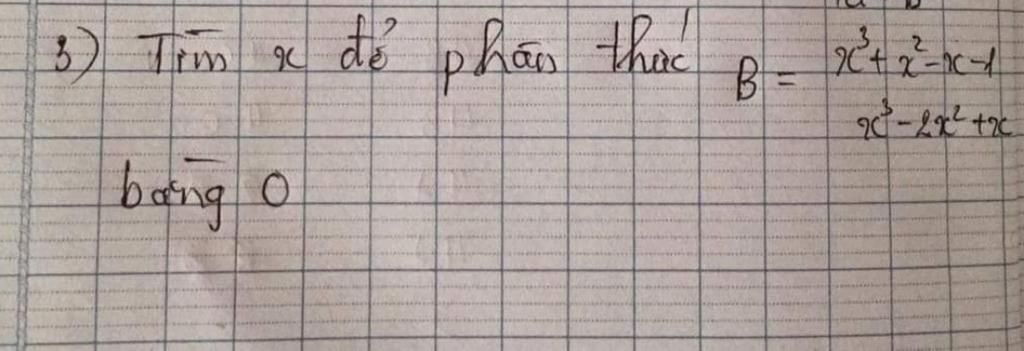 3) Tìm x để phân thức B = x³ + x² - x - 1
x³ - 2x² + x
bằng 0